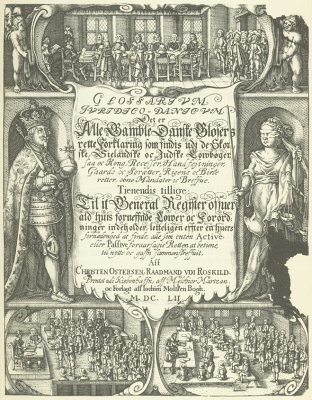 GLOSSARIUM
JURIDICO-DANICUM
Det er
Alle Gamble Danske Glosers
rette Forklaring som findis udi de Skon
ske, Sielandske oc Judske Lowbøger
saa oc Kong. Recesser, Handfestninger,
Gaards oc Søretter, Rigens oc Birck
retter, obne Mandater oc Breffue.
Tienendis tillige:
Til it General Register offuer
ald huis fornefnde Lower oc Forord-
ninger indeholder, letteligen effter en huers
at finde, alle som enten Active
eller Passive Retten at betiene,
Aff
CHRISTEN OSTERSEN, RAADMAND UDI ROSKILD.
Prentet udi Kiøbenhaffn, aff Melchior Martzan,
oc forlagt aff Jochim Moltken Bogh.
M.DC.LII